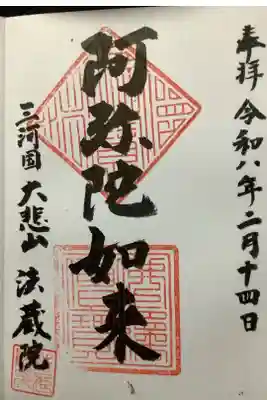 奉拝 令和八年二月十四日
阿弥陀如来
三河国 大悲山 法蔵院